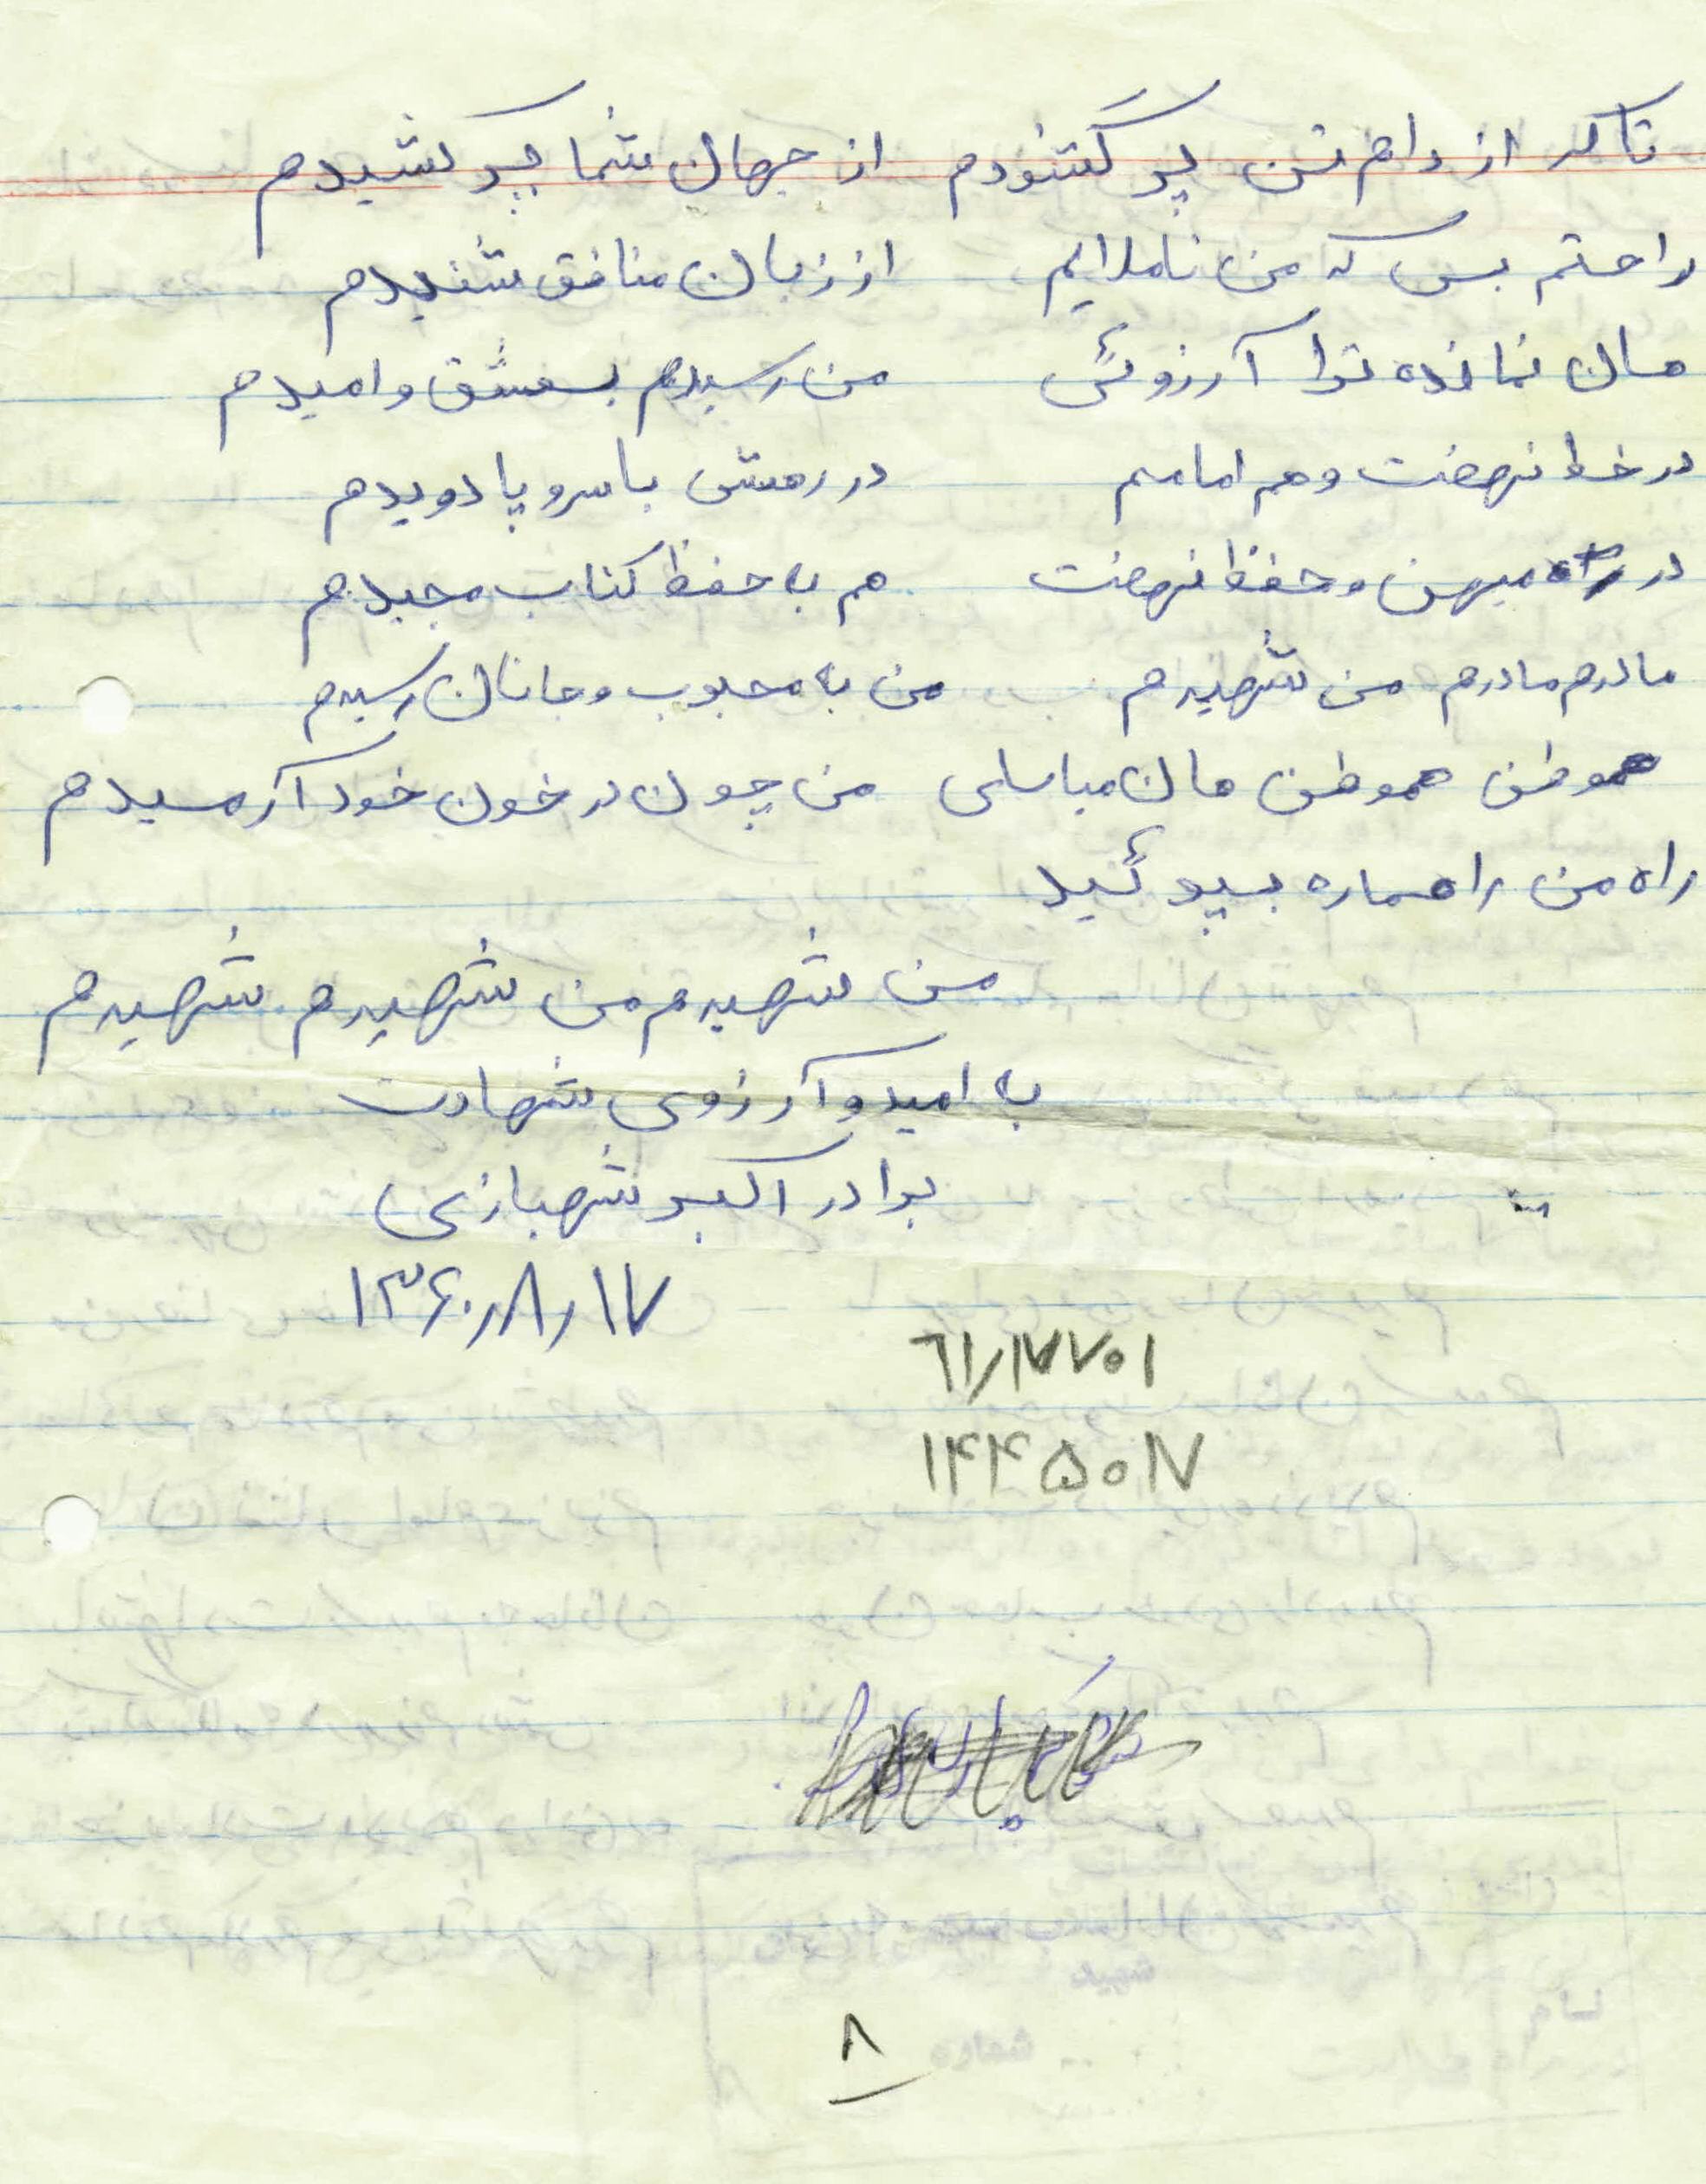 تا که از دام تن پر گشودم از جهان شما پر کشیدم
راحتم بس که من ناملایم از زبان منافق شنیدم
هان نمانده ترا آرزوئی من رسیدم بعشق و امیدم
در خط نهضت و هم امامم در رهش با سر و پا دویدم
در راه میهن و حفظ نهضت هم به حفظ کتاب مجیدم
مادرم مادرم من شهیدم من به محبوب و جانان رسیدم
هموطن هموطن هان مبا من چون در خون خود آرمیدم
راه من را هماره بپوئید
من شهیدم من شهیدم شهیدم
به امید و آرزوی شهادت
برادر اکبر شهبازی
۱۳۶۰٫۸٫۱۷
۶۱/۱۷۷۰۱
۱۴۴۵۰۱۷
۸